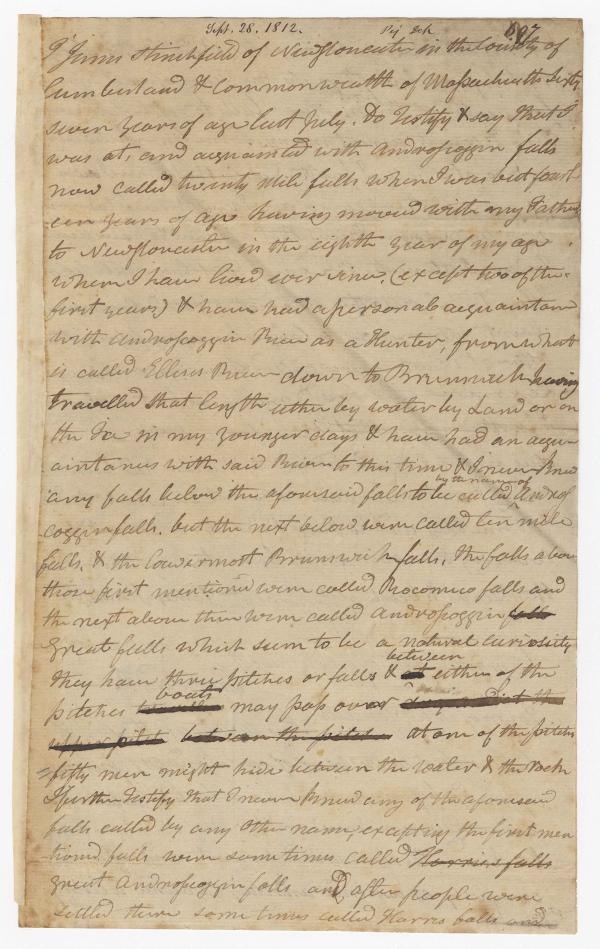 Sept. 28. 1812. Pej Sch 607
I James Stinchfield of New Gloucester in the County of
Cumberland & Commonwealth of Massachusetts Sixty
seven years of age last July. do Testify & say that I
was at, and acquainted with Androscoggin falls
now called twenty mile falls when I was but fourt
een years of age having moved with my Father
to New Gloucester in the eighth year of my age
where I have lived ever since, (except two of the
first years) & have had a personal acquaintance
with Androscoggin River as a Hunter, from what
is called Ellises River down to Brunswick having
travelled that length either by water by Land or on
the Ice in my younger days & have had an acqu-
aintance with said River to this time & I never knew
by the name of
any falls below the aforesaid falls to be called Andros
coggin falls. but the next below were called ten mile
falls, & the lowermost Brunswick falls, the falls above
those first mentioned were called Rocomeco falls and
the next above them were called Androscoggin falls
great falls which seem to be a natural curiosity
between
they have three pitches or falls & at either of the
boats
pitches may pass over
between the pitches at one of the pitches
fifty men might hide between the water & the rock
I further Testify that I never knew any of the aforesaid
falls called by any other name, excepting the first men
tioned falls were some times called Harris falls
great Androscoggin falls and after people were
settled there some times called Harris falls and